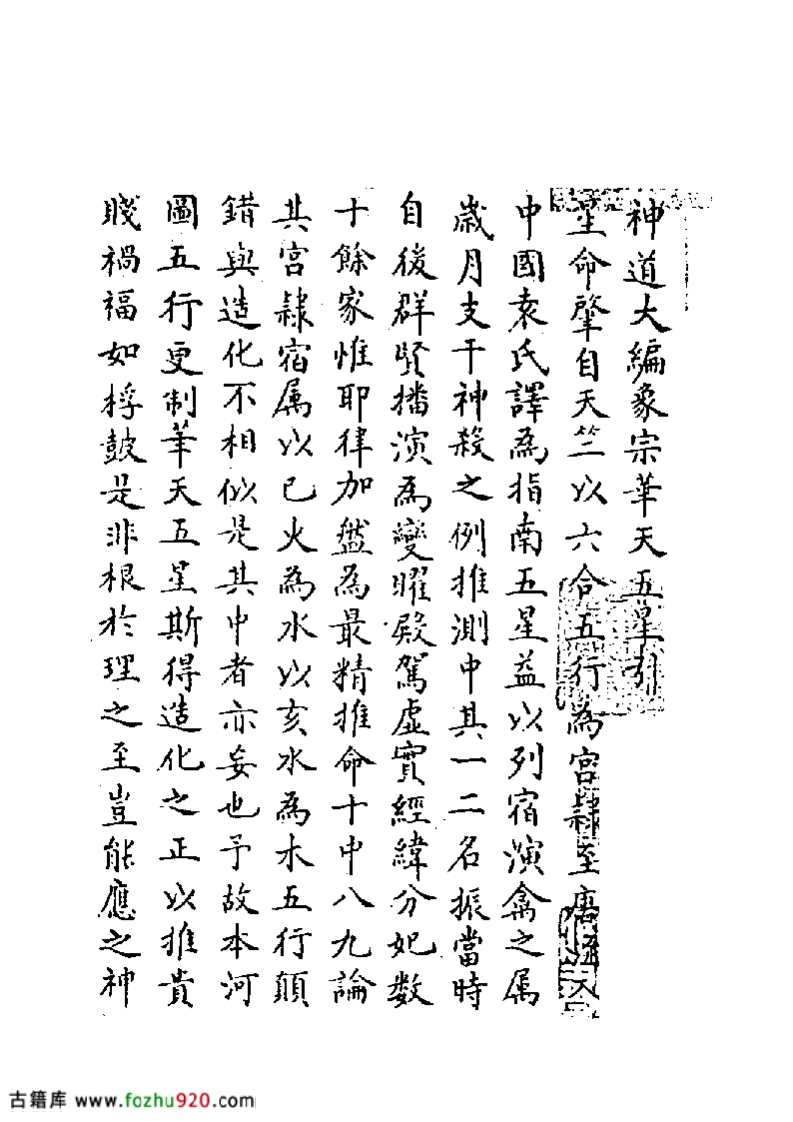 神道大編象宗華天五星引
星命肇自天竺以六合五行為宮隸至唐
中國袁氏譯為指南五星益以列宿演禽之属
歲月支干神殺之例推測中其一二名振當時
自後群賢播演為變曜殿駕虛實經緯分妃数
十餘家惟耶律加盤為最精推命十中八九論
其宮隸宿属以巳火為水以亥水為木五行顛
錯與造化不相似是其中者亦妄也予故本河
圖五行更制華天五星斯得造化之正以推貴
賤禍福如桴鼓是非根於理之至豈能應之神
古籍库 www.fozhu920.com